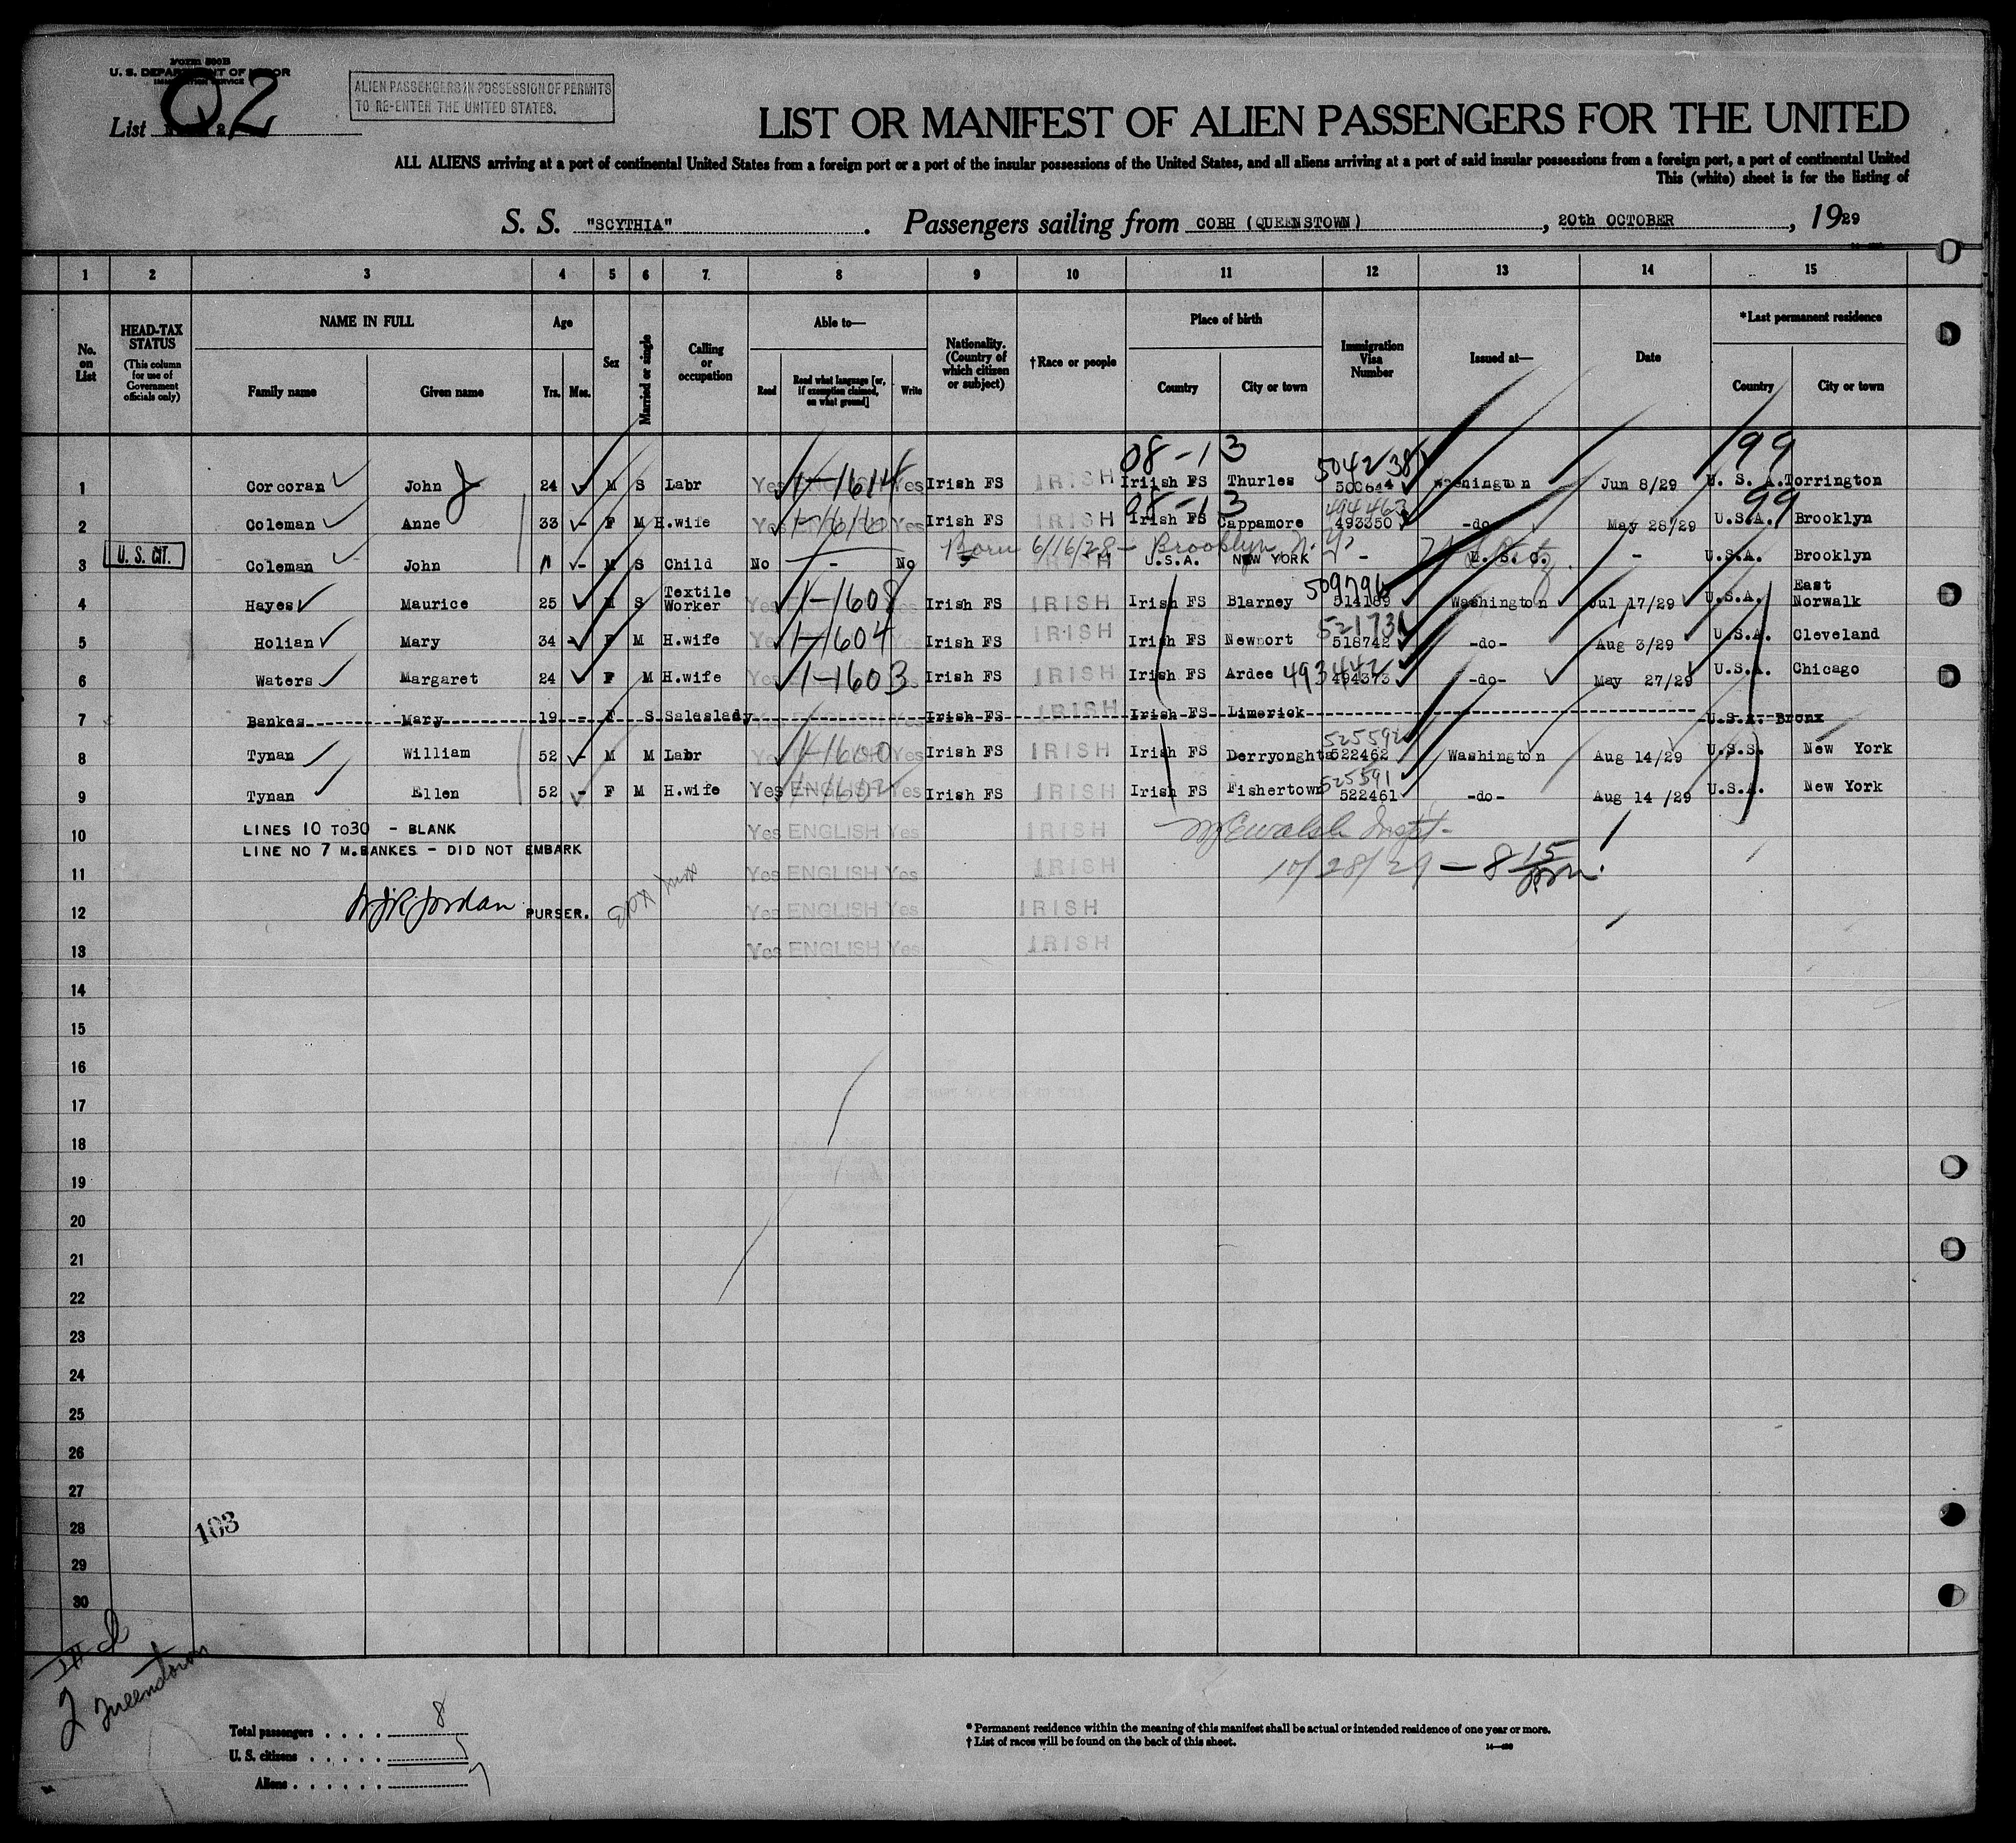 FORM 500B
U. S. DEPARTMENT OF LABOR
IMMIGRATION SERVICE
List 2
Q2
ALIEN PASSENGERS IN POSSESSION OF PERMITS
TO RE-ENTER THE UNITED STATES.
LIST OR MANIFEST OF ALIEN PASSENGERS FOR THE UNITED
ALL ALIENS arriving at a port of continental United States from a foreign port or a port of the insular possessions of the United States, and all aliens arriving at a port of said insular possessions from a foreign port, a port of continental United
This (white) sheet is for the listing of
S. S. "SCYTHIA". Passengers sailing from COBH (QUEENSTOWN), 20th OCTOBER, 1929
1 2 3 4 5 6 7. 8 9 10 11 12 13 14 15
No. on List
HEAD-TAX STATUS
(This column for use of Government officials only)
NAME IN FULL
Family name Given name
Age
Yrs. Mos.
Sex
Married or single
Calling or occupation
Able to—
Read Read what language [or, if exemption claimed, on what ground] Write
Nationality. (Country of which citizen or subject)
†Race or people
Place of birth
Country City or town
Immigration Visa Number
Issued at—
Date
*Last permanent residence
Country City or town
08-13 504238 99
1 Corcoran John J 24 - M S Labr Yes ENGLISH 1-1614 Yes Irish FS IRISH Iriish FS Thurles 500644 Washington Jun 8/29 U. S. A. Torrington
08-13 494463 99
2 Coleman Anne 33 - F M H.wife Yes ENGLISH Yes Irish FS IRISH Irish FS Cappamore 493350 -do- May 28/29 U.S.A. Brooklyn
Born 6/16/28 - Brooklyn N.Y.
3 U. S. CIT. Coleman John - M S Child No - No IRISH U.S.A. NEW YORK - U. S. C. - U.S.A. Brooklyn
509796
4 Hayes Maurice 25 M S Textile Worker Yes 1-1608 Yes Irish FS IRISH Irish FS Blarney 514189 Washington Jul 17/29 U.S.A. East Norwalk
521731
5 Holian Mary 34 - F M H.wife Yes 1-1604 Irish FS IRISH Irish FS Newport 518742 -do- Aug 3/29 U.S.A. Cleveland
493442
6 Waters Margaret 24 F M H.wife Yes 1-1603 Irish FS IRISH Irish FS Ardee 494373 -do- May 27/29 U.S.A. Chicago
7 Bankes Mary 19 - F S Saleslady Yes Irish FS IRISH Irish FS Limerick U.S.A. Bronx
525592
8 Tynan William 52 - M M Labr Yes 1-1600 Yes Irish FS IRISH Irish FS Derryonghta 522462 Washington Aug 14/29 U.S.S. New York
525591
9 Tynan Ellen 52 - F M H.wife Yes ENGLISH 1-1602 Yes Irish FS IRISH Irish FS Fishertown 522461 -do- Aug 14 /29 U.S.A. New York
10 LINES 10 TO30 - BLANK Yes ENGLISH Yes IRISH
LINE NO 7 M.BANKES - DID NOT EMBARK
11 Yes ENGLISH Yes IRISH 10/28/29 - 8 15
12 Jordan PURSER. Yes ENGLISH Yes IRISH
13 Yes ENGLISH Yes IRISH
14
15
16
17
18
19
20
21
22
23
24
25
26
27
28 103
29
30
Queenstown
Total passengers . . . . 8
U. S. citizens . . . . . 1
Aliens . . . . . . 7
* Permanent residence within the meaning of this manifest shall be actual or intended residence of one year or more.
† List of races will be found on the back of this sheet.